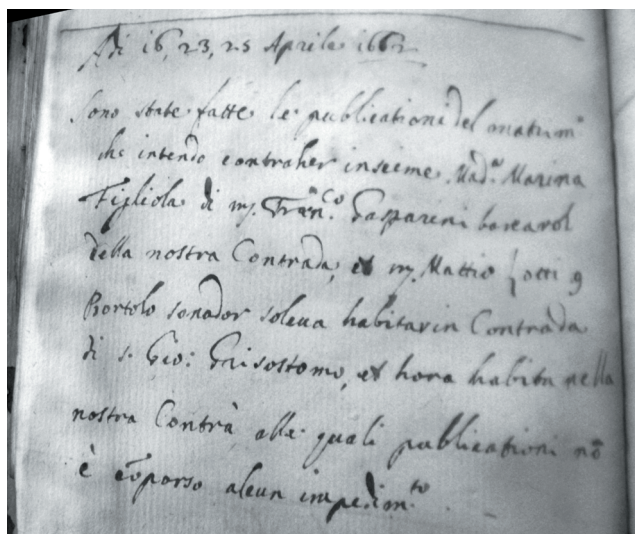 Adi 16, 23, 25 Aprile 1662
Sono state fatte le publicationi del matrim.º
che intendo contraher insieme Mad.ª Marina
Figliola di m. Fran.co Gasparini barcarol
della nostra Contrada, et m. Mattio Lotti q
Bortolo sonador soleva habitar in Contrada
di S. Gio: Grisostomo, et hora habita nella
nostra Contrà alle quali publicationi nõ
è cõparso alcun impedim.to